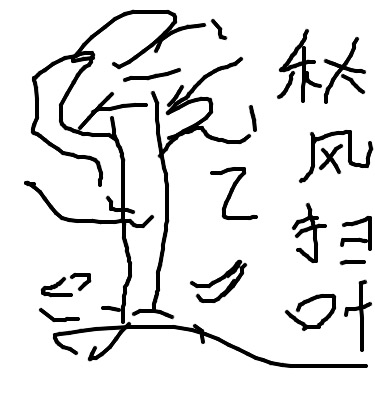 秋风扫叶